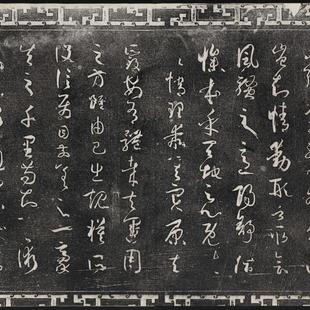 豈知情動形言取會
風騷之意陽舒陰
慘本乎天地之心既失
其情理乖其實原夫
所致安有體哉夫運用
之方雖由己出規模所
設信屬目前差之一豪
失之千里苟知其術